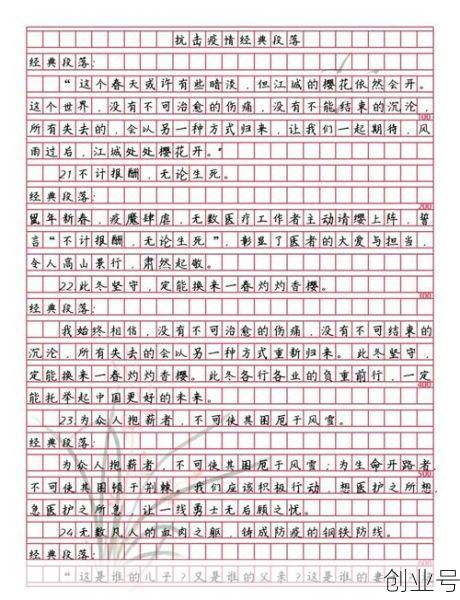 抗击疫情经典段落
经典段落:
“这个春天或许有些暗淡，但江城的樱花依然会开。
这个世界，没有不可治愈的伤痛，没有不能结束的沉沦，
100
所有失去的，会以另一种方式归来，让我们一起期待，风
雨过后，江城处处樱花开。”
21不计报酬，无论生死。
经典段落:
200
鼠年新春，疫魔肆虐，无数医疗工作者主动请缨上阵，誓
言“不计报酬，无论生死”，彰显了医者的大爱与担当，
令人高山景行，肃然起敬。
22.此冬坚守，定能换来一春灼灼香樱。
300
经典段落:
我始终相信，没有不可治愈的伤痛，没有不可结束的
沉沦，所有失去的会以另一种方式重新归来。此冬坚守，
定能换来一春灼灼香樱。此冬各行各业的负重前行，一定
400
能托举起中国更好的未来。
23.为众人抱薪者，不可使其困厄于风雪。
经典段落:
为众人抱薪者，不可使其困厄于风雪；为生命开路者，
500
不可使其困顿于荆棘。我们应该积极行动，想医护之所想，
急医护之所急，让一线勇士无后顾之忧。
24.无数凡人的血肉之躯，铸成防疫的钢铁防线。
经典段落:
600
“这是谁的儿子？又是谁的父亲？这是谁的妻
创业号